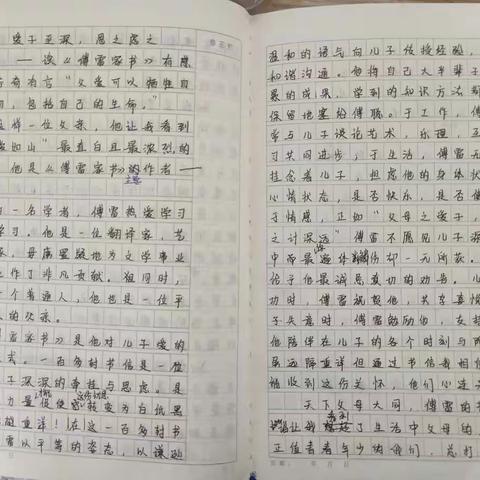 爱子至深，思之虑之
——读《傅雷家书》有感
奇有言“父爱可以牺牲自
，包括自己的生命。”
这样一位父亲，他让我看到
如山”最直白且最浓烈的
他是《傅雷家书》的作者——
一名学者，傅雷热爱学习
学习。他是一位翻译家，艺
毋庸置疑地为文学事业
作了非凡贡献。但同时，
一个普通人，他也是一位平
人的父亲。
雷家书》是他对儿子爱的
式。一百多封书信是一位
子深深的牵挂与思虑。是
力量促使转变为白纸黑
重洋！在这一百多封书
雷以平等的姿态，以谦逊
温和的语气向儿子传授经验，
和谐沟通。他将自己大半辈子
累的成果，学到的知识方法
保留地塞给傅聪。于工作，傅
学与儿子谈论艺术，乐理，互
习共同进步；于生活，傅雷无
挂念着儿子，担虑他的身体状
心情状态，是否快乐，是否
于情愿，正如“父母之爱子，
之计深远”傅雷不愿见儿子
中而最却一无所获。
给予他最诚恳真切的劝导。儿
功时，傅雷祝贺他，共享喜悦
子失意时，傅雷勉励他，支持
他陪伴在儿子的各个时刻与
虽远隔重洋但通过书信我相信
聪收到这份关怀，他们心连
天下父母大同，傅雷的
让我了生活中父母的
正值青春年少的我们，总打